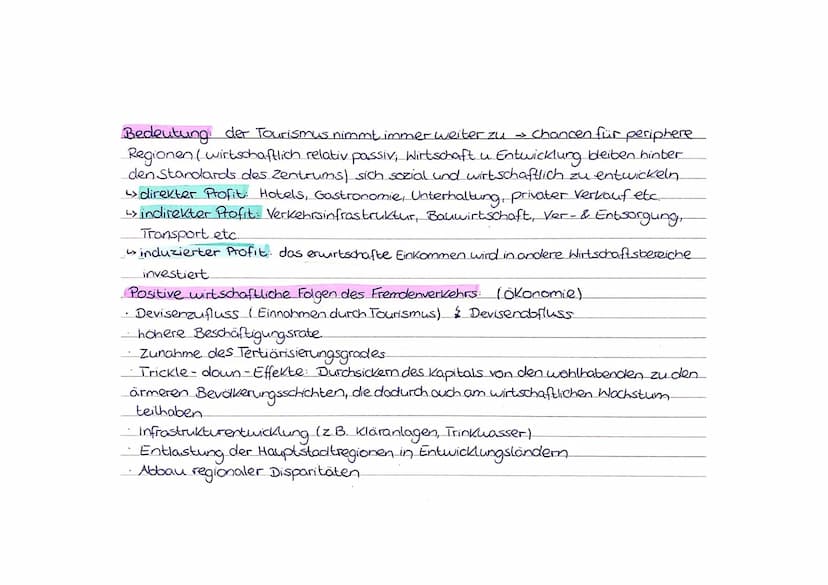 Bedeutung: der Tourismus nimmt immer weiter zu → Chancen für periphere
Regionen (wirtschaftlich relativ passiv, Wirtschaft u. Entwicklung bleiben hinter
den Standards des Zentrums) sich sozial und wirtschaftlich zu entwickeln
↳ direkter Profit: Hotels, Gastronomie, Unterhaltung, privater Verkauf etc.
↳ indirekter Profit: Verkehrsinfrastruktur, Bauwirtschaft, Ver- & Entsorgung,
Transport etc.
↳ induzierter Profit: das erwirtschafte Einkommen wird in andere Wirtschaftsbereiche
investiert
Positive wirtschaftliche Folgen des Fremdenverkehrs: (Ökonomie)
· Devisenzufluss (Einnahmen durch Tourismus) ↯ Devisenabfluss
· höhere Beschäftigungsrate
· Zunahme des Tertiärisierungsgrades
· Trickle-down-Effekte: Durchsickern des Kapitals von den wohlhabenden zu den
ärmeren Bevölkerungsschichten, die dadurch auch am wirtschaftlichen Wachstum
teilhaben
· Infrastrukturentwicklung (z.B. Kläranlagen, Trinkwasser)
· Entlastung der Hauptstadtregionen in Entwicklungsländern
· Abbau regionaler Disparitäten